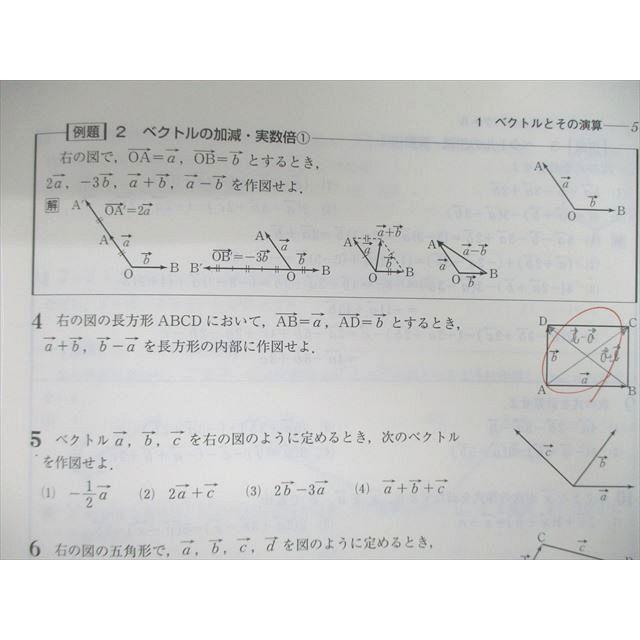 1 ベクトルとその演算 5
例題 2 ベクトルの加減・実数倍①
右の図で，OA=a，OB=b とするとき，
2a，-3b，a+b，a-b を作図せよ．
解
A′ OA′=2a A a b O B
B′ OB′=-3b A a O b B
A a a+b b O b B
A a a-b O b B
A a b O B
4 右の図の長方形 ABCD において，AB=a，AD=b とするとき，
a+b，b-a を長方形の内部に作図せよ．
D C b a A B
5 ベクトル a，b，c を右の図のように定めるとき，次のベクトル
を作図せよ．
(1) -1/2 a (2) 2a+c (3) 2b-3a (4) a+b+c
c b a
6 右の図の五角形で，a，b，c，d を図のように定めるとき，
C c